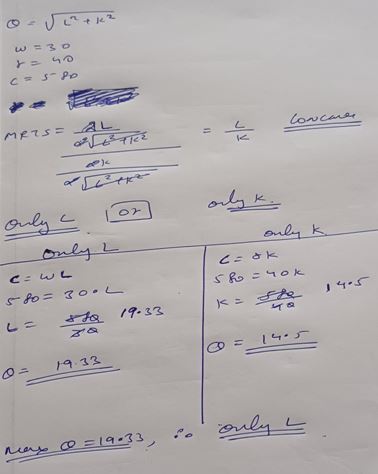 Q = √L² + K²
w = 30
r = 40
C = 580
MRTS = 2L / 2√L² + K² / 2K / 2√L² + K² = L / K Concave
only L or only K.
only L
C = wL
580 = 30·L
L = 580 / 30 19.33
Q = 19.33
only K
C = rK
580 = 40K
K = 580 / 40 14.5
Q = 14.5
max Q = 19.33, ∴ only L